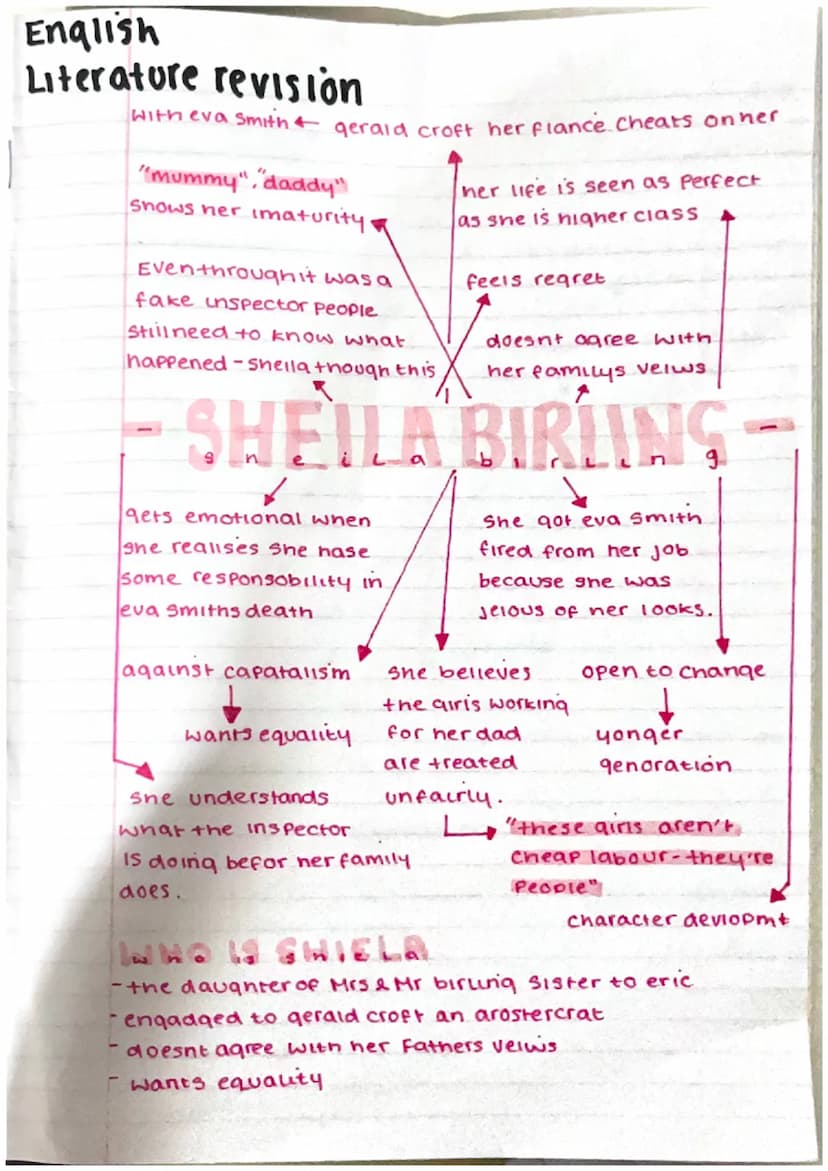 English
Literature revision
with eva smith ← gerald croft her fiance cheats on her
"mummy", "daddy"
shows her imaturity
her life is seen as perfect
as she is higher class
Eventhrough it was a
fake inspector people
still need to know what
happened - sheila though this
feels regret
doesnt agree with
her familys veiws
- SHEILA BIRLING -
sheila birling
gets emotional when
she realises she hase
some responsobility in
eva smiths death
she got eva smith
fired from her job
because she was
jelous of her looks.
against capatalism
wants equality
she believes
the girls working
for her dad
are treated
unfairly.
open to change
yonger
genoration
"these girls aren't
cheap labour - they're
people"
she understands
what the inspector
is doing befor her family
does.
character devlopmt
WHO IS SHIELA
who is shiela
- the daughter of Mrs & Mr birling sister to eric
- engadged to gerald croft an arostercrat
- doesnt agree with her fathers veiws
- wants equality